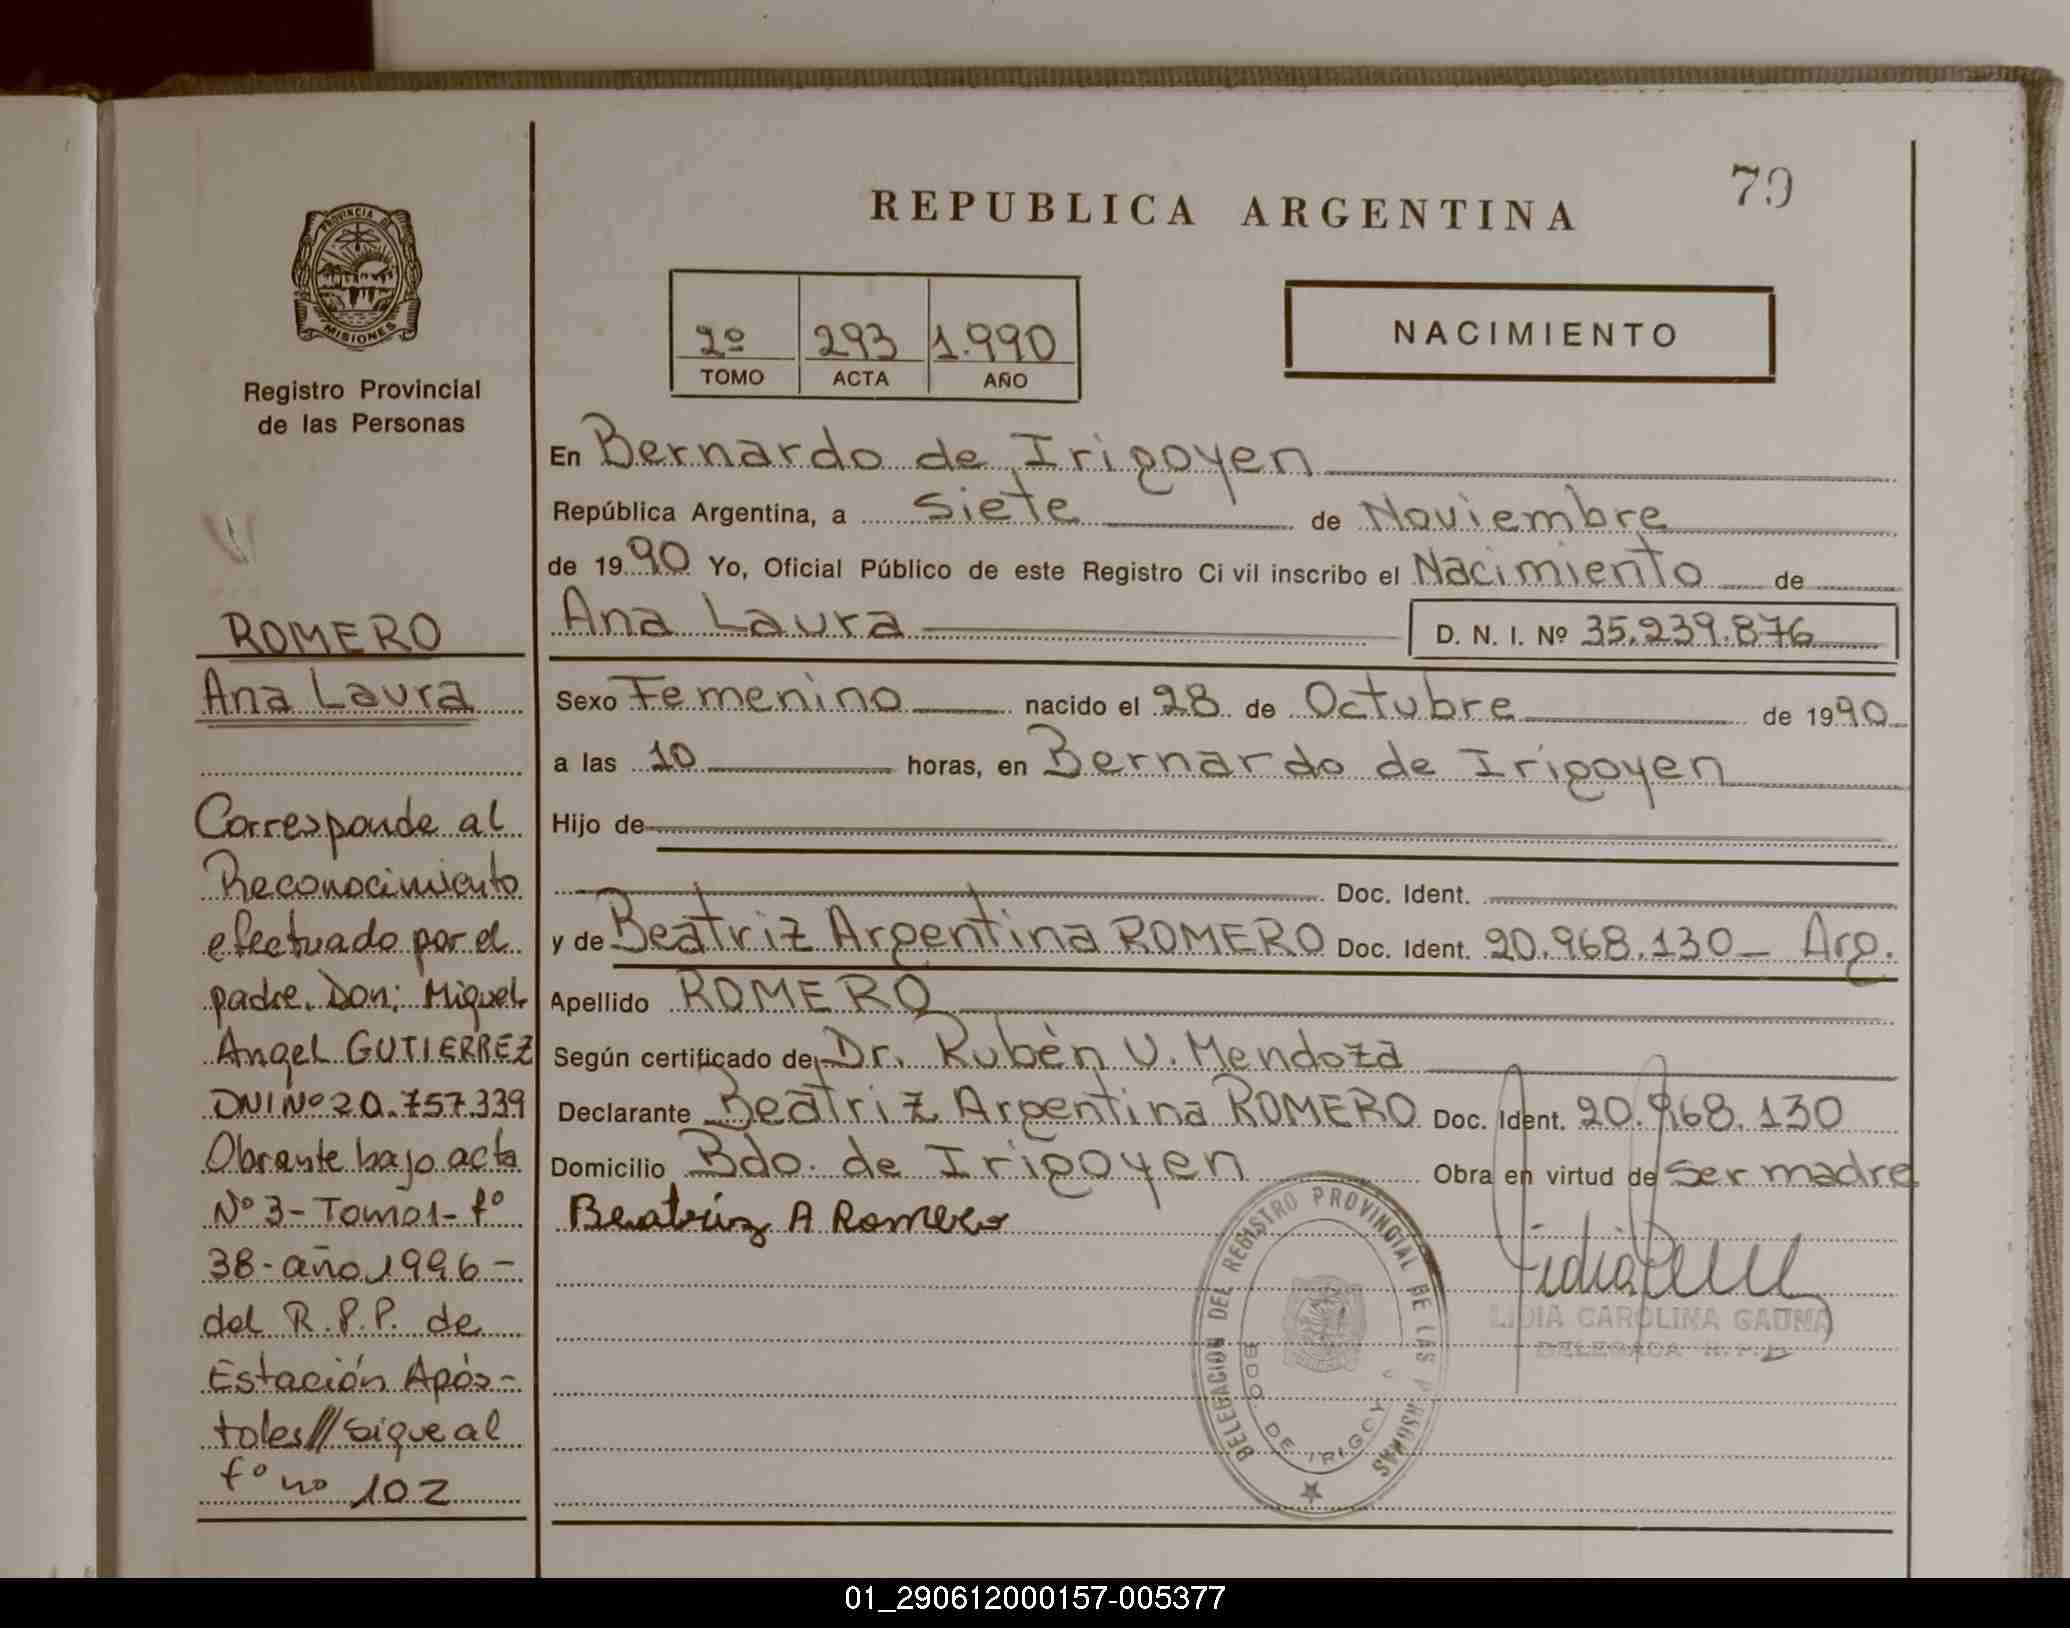 79
REPUBLICA ARGENTINA
PROVINCIA DE
MISIONES
Registro Provincial
de las Personas
2º 293 1.990
TOMO ACTA AÑO
NACIMIENTO
En Bernardo de Irigoyen
República Argentina, a siete de Noviembre
de 1990 Yo, Oficial Público de este Registro Ci vil inscribo el Nacimiento de
Ana Laura D. N. I. Nº 35.239.876
Sexo Femenino nacido el 28 de Octubre de 1990
a las 10 horas, en Bernardo de Irigoyen
Hijo de
Doc. Ident.
y de Beatriz Argentina ROMERO Doc. Ident. 20.968.130 - Arg.
Apellido ROMERO
Según certificado de Dr. Rubén V. Mendoza
Declarante Beatriz Argentina ROMERO Doc. Ident. 20.968.130
Domicilio Bdo. de Irigoyen Obra en virtud de ser madre
Beatriz A Romero
DELEGACION DEL REGISTRO PROVINCIAL DE LAS PERSONAS
BDO. DE IRIGOY
LIDIA CAROLINA GAUNA
DELEGADA R.P.P.
ROMERO
Ana Laura
Corresponde al
Reconocimiento
efectuado por el
padre. Don: Miguel
Angel GUTIERREZ
DNI Nº 20.757.339
Obrante bajo acta
Nº 3 - Tomo 1 - fº
38 - año 1996 -
del R.P.P. de
Estación Após-
toles // sigue al
fº nº 102
01_290612000157-005377